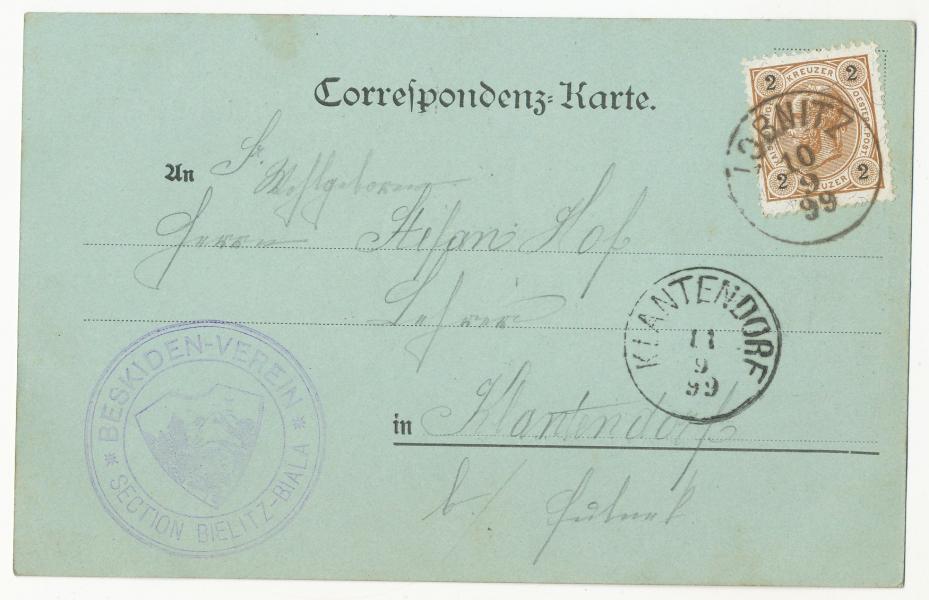 Correspondenz-Karte.
2 KREUZER 2
2 KREUZER 2
OESTERR. POST
ZOBNITZ
10
9
99
An Sr. Wohlgeboren
Herrn Stefan Hof
Lehrer
KLANTENDORF
11
9
99
in Klantendorf
b/ Fulnek
* BESKIDEN-VEREIN *
SECTION BIELITZ-BIALA